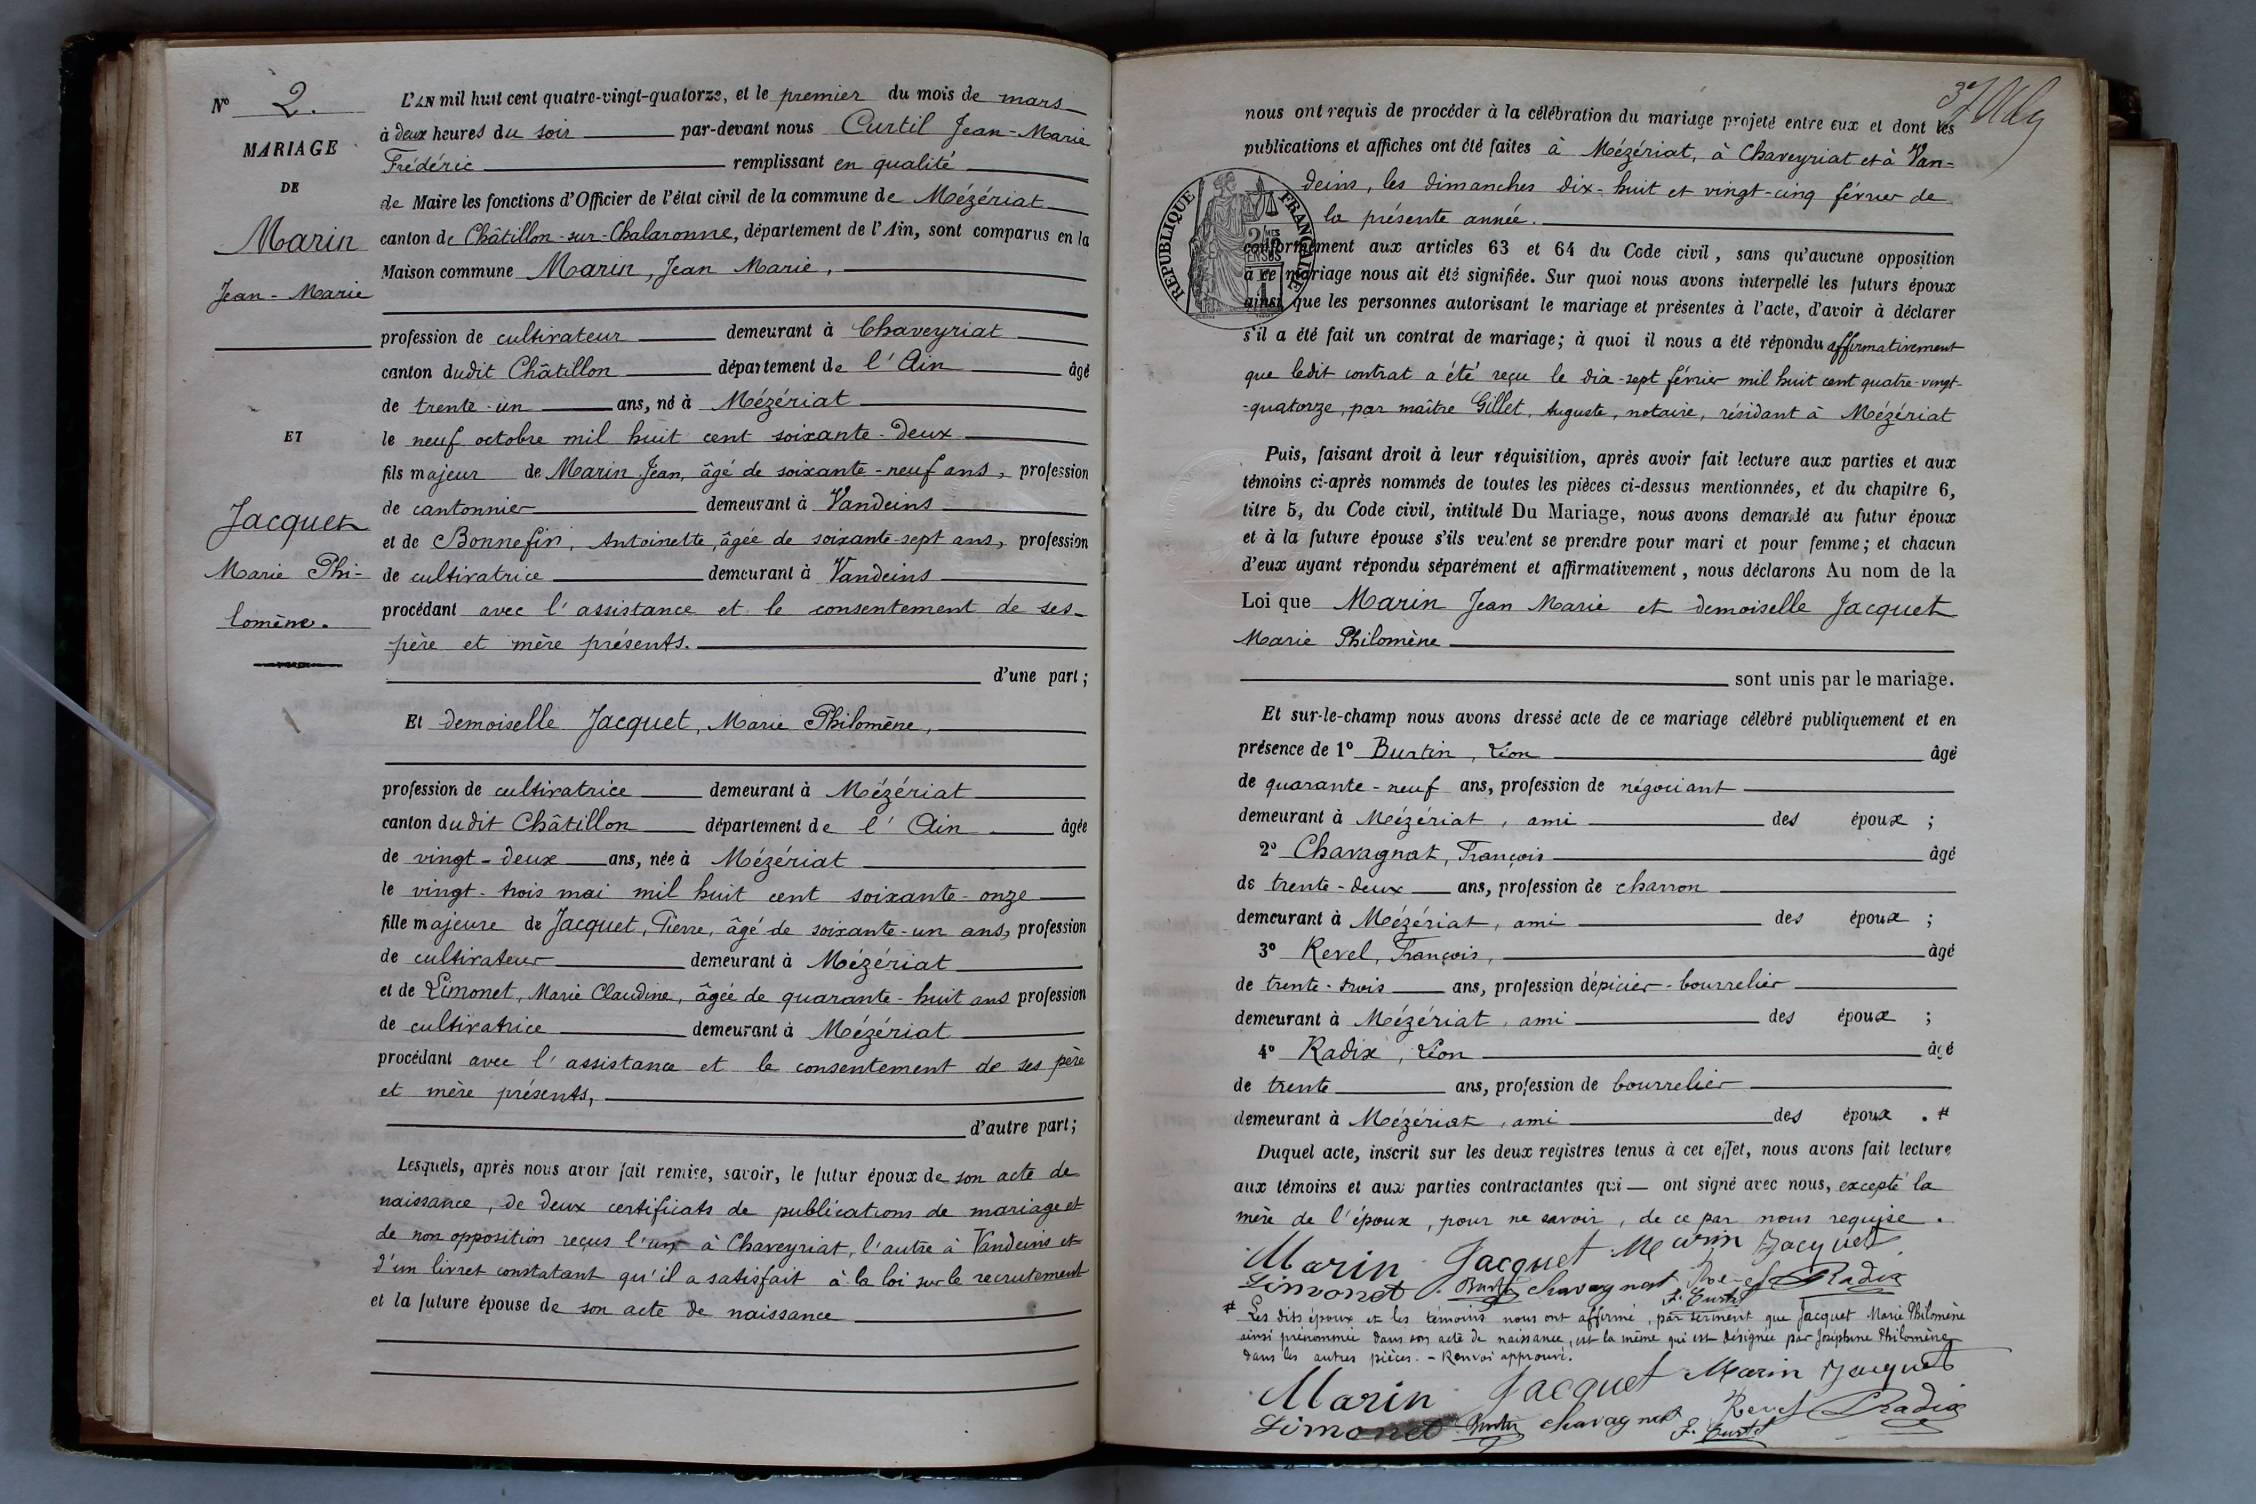 N° 2.
MARIAGE
DE
Marin
Jean-Marie
ET
Jacquet
Marie Phi-
lomène.
L'AN mil huit cent quatre-vingt-quatorze, et le premier du mois de mars
à deux heures du soir par-devant nous Curtil Jean-Marie
Frédéric remplissant en qualité
de Maire les fonctions d'Officier de l'état civil de la commune de Mézériat
canton de Châtillon-sur-Chalaronne, département de l'Ain, sont comparus en la
Maison commune Marin, Jean Marie,
profession de cultivateur demeurant à Chaveyriat
canton dudit Châtillon département de l'Ain âgé
de trente-un ans, né à Mézériat
le neuf octobre mil huit cent soixante-deux
fils majeur de Marin Jean, âgé de soixante-neuf ans, profession
de cantonnier demeurant à Vandeins
et de Bonnefin, Antoinette, âgée de soixante-sept ans, profession
de cultivatrice demeurant à Vandeins
procédant avec l'assistance et le consentement de ses
père et mère présents.
d'une part;
Et demoiselle Jacquet, Marie Philomène,
profession de cultivatrice demeurant à Mézériat
canton dudit Châtillon département de l'Ain âgée
de vingt-deux ans, née à Mézériat
le vingt-trois mai mil huit cent soixante-onze
fille majeure de Jacquet, Pierre, âgé de soixante-un ans, profession
de cultivateur demeurant à Mézériat
et de Limonet, Marie Claudine, âgée de quarante-huit ans profession
de cultivatrice demeurant à Mézériat
procédant avec l'assistance et le consentement de ses père
et mère présents,
d'autre part;
Lesquels, après nous avoir fait remise, savoir, le futur époux de son acte de
naissance, de deux certificats de publications de mariage et
de non opposition reçus l'un à Chaveyriat, l'autre à Vandeins et
d'un livret constatant qu'il a satisfait à la loi sur le recrutement
et la future épouse de son acte de naissance
nous ont requis de procéder à la célébration du mariage projeté entre eux et dont les
publications et affiches ont été faites à Mézériat, à Chaveyriat et à Van-
deins, les dimanches dix-huit et vingt-cinq février de
la présente année.
RÉPUBLIQUE FRANÇAISE
conformément aux articles 63 et 64 du Code civil, sans qu'aucune opposition
à ce mariage nous ait été signifiée. Sur quoi nous avons interpellé les futurs époux
ainsi que les personnes autorisant le mariage et présentes à l'acte, d'avoir à déclarer
s'il a été fait un contrat de mariage; à quoi il nous a été répondu affirmativement
que ledit contrat a été reçu le dix-sept février mil huit cent quatre-vingt-
-quatorze, par maître Gillet, Auguste, notaire, résidant à Mézériat
Puis, faisant droit à leur réquisition, après avoir fait lecture aux parties et aux
témoins ci-après nommés de toutes les pièces ci-dessus mentionnées, et du chapitre 6,
titre 5, du Code civil, intitulé Du Mariage, nous avons demandé au futur époux
et à la future épouse s'ils veulent se prendre pour mari et pour femme; et chacun
d'eux ayant répondu séparément et affirmativement, nous déclarons Au nom de la
Loi que Marin Jean Marie et demoiselle Jacquet
Marie Philomène
sont unis par le mariage.
Et sur-le-champ nous avons dressé acte de ce mariage célébré publiquement et en
présence de 1° Burtin, Léon âgé
de quarante-neuf ans, profession de négociant
demeurant à Mézériat, ami des époux ;
2° Chavagnat, François âgé
de trente-deux ans, profession de charron
demeurant à Mézériat, ami des époux ;
3° Revel, François, âgé
de trente-trois ans, profession d'épicier-bourrelier
demeurant à Mézériat, ami des époux ;
4° Radix, Léon âgé
de trente ans, profession de bourrelier
demeurant à Mézériat, ami des époux . #
Duquel acte, inscrit sur les deux registres tenus à cet effet, nous avons fait lecture
aux témoins et aux parties contractantes qui ont signé avec nous, excepté la
mère de l'époux, pour ne savoir, de ce par nous requise.
Marin Jacquet Marin Jacquet
Limonet Burtin Chavagnat Revel Radix
F. Curtil
# Les dits époux et les témoins nous ont affirmé, par serment que Jacquet Marie Philomène
ainsi prénommée dans son acte de naissance, est la même qui est désignée par Joséphine Philomène
dans les autres pièces. - Renvoi approuvé.
Marin Jacquet Marin Jacquet
Limonet Burtin Chavagnat Revel Radix
F. Curtil